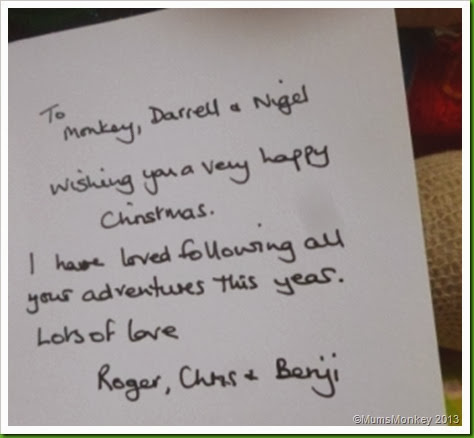 To
Monkey, Darrell & Nigel
Wishing you a very happy
Christmas.
I have loved following all
your adventures this year.
Lots of love
Roger, Chris & Benji
©MumsMonkey 2013